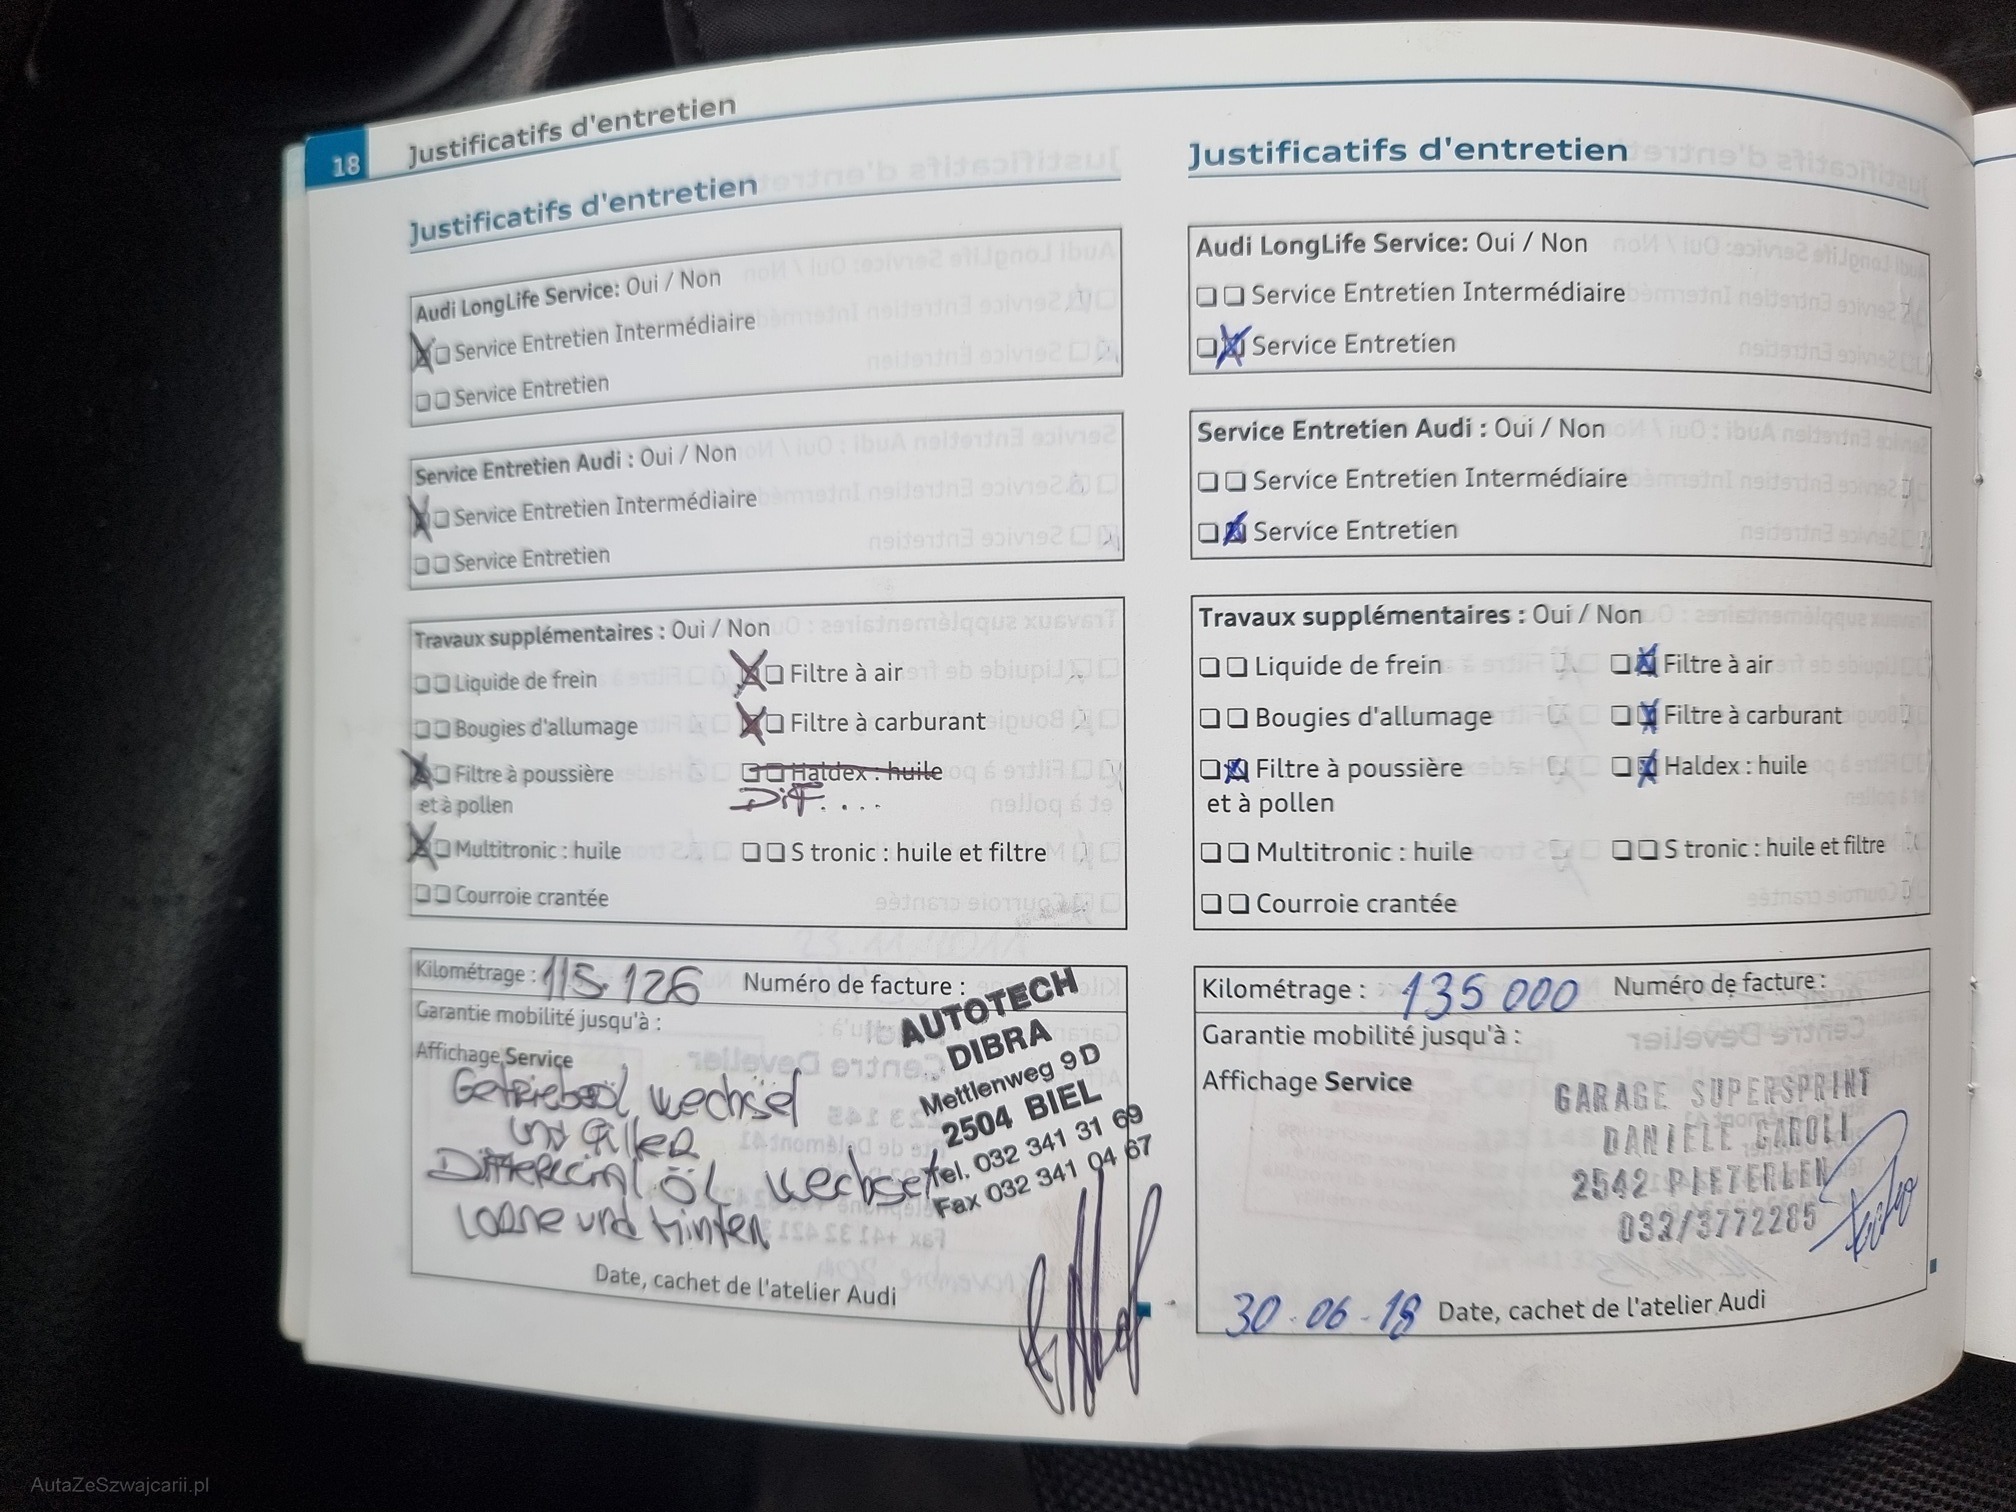 18
Justificatifs d'entretien
Justificatifs d'entretien
Audi LongLife Service: Oui / Non
Service Entretien Intermédiaire
Service Entretien
Service Entretien Audi : Oui / Non
Service Entretien Intermédiaire
Service Entretien
Travaux supplémentaires : Oui / Non
Liquide de frein
Filtre à air
Bougies d'allumage
Filtre à carburant
Filtre à poussière
et à pollen
Haldex : huile
Diff. . . .
Multitronic : huile
S tronic : huile et filtre
Courroie crantée
Kilométrage : 115.126 Numéro de facture :
Garantie mobilité jusqu'à :
Affichage Service
Getriebeöl wechsel
und Filter
Differencial öl wechsel
vorne und hinten
AUTOTECH
DIBRA
Mettlenweg 9 D
2504 BIEL
Tel. 032 341 31 69
Fax 032 341 04 67
Date, cachet de l'atelier Audi
Justificatifs d'entretien
Audi LongLife Service: Oui / Non
Service Entretien Intermédiaire
Service Entretien
Service Entretien Audi : Oui / Non
Service Entretien Intermédiaire
Service Entretien
Travaux supplémentaires : Oui / Non
Liquide de frein
Filtre à air
Bougies d'allumage
Filtre à carburant
Filtre à poussière
et à pollen
Haldex : huile
Multitronic : huile
S tronic : huile et filtre
Courroie crantée
Kilométrage : 135 000 Numéro de facture :
Garantie mobilité jusqu'à :
Affichage Service
GARAGE SUPERSPRINT
DANIELE CAROLI
2542 PIETERLEN
032/3772285
30.06.18 Date, cachet de l'atelier Audi
AutaZeSzwajcarii.pl